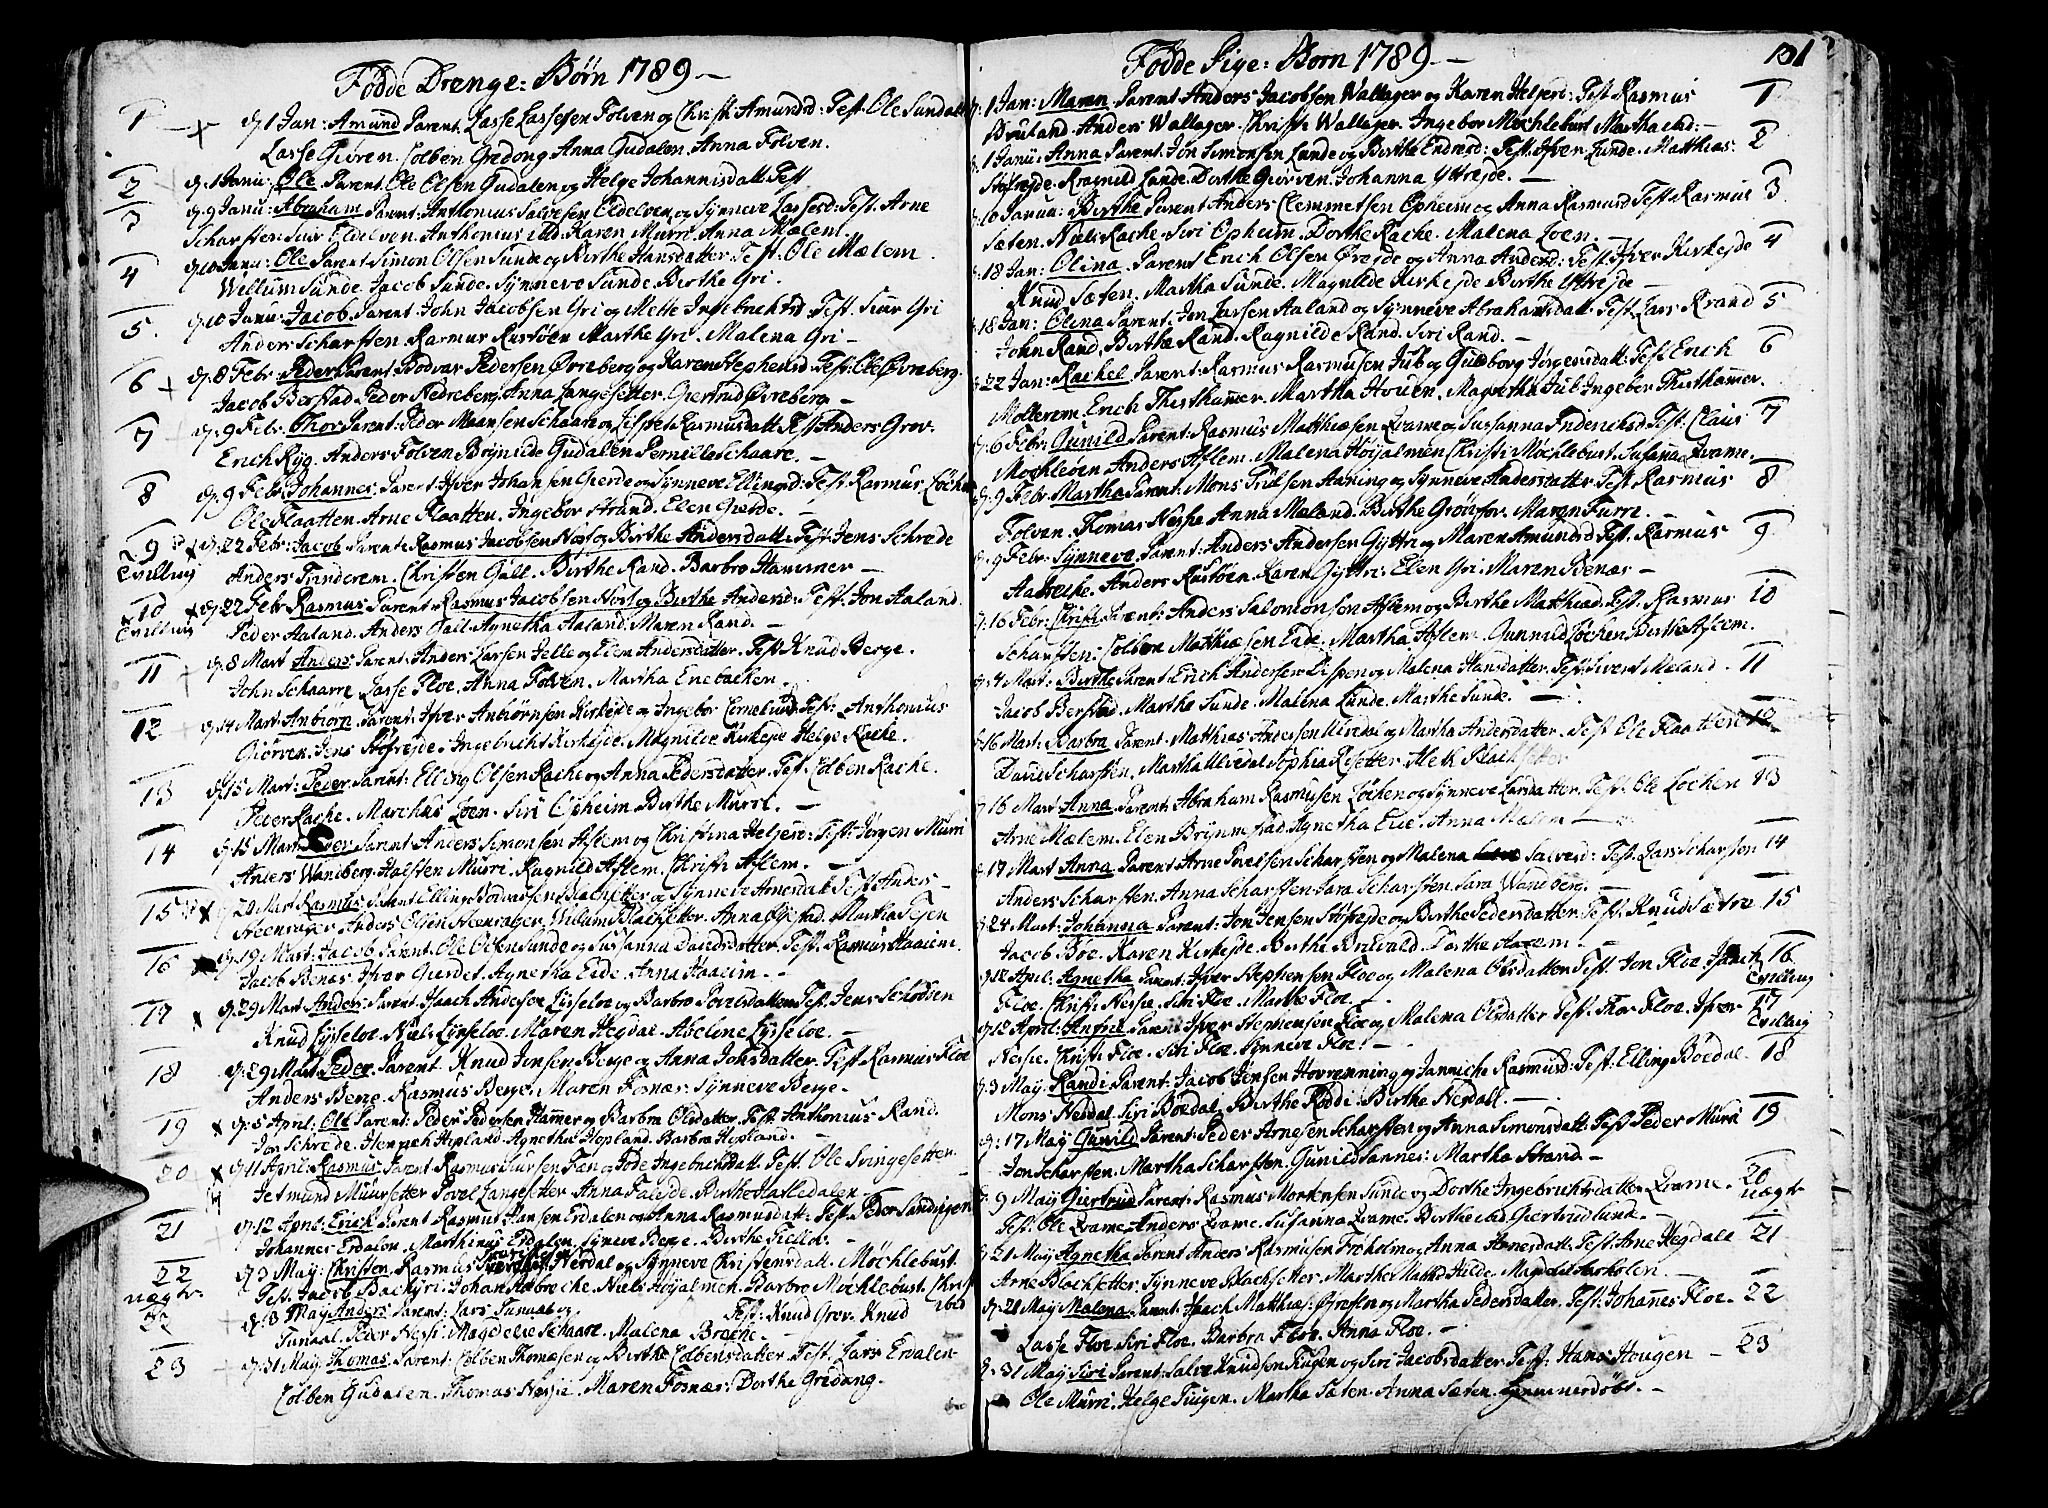 Födde Drenge: Børn 1789 –
1 d. 1 Jan: Amund Parent. Lasse Lassesen Folven og Christi Amundsd: Test. Ole Sundal
Lasse Giören. Colben Gredong Anna Gudalen. Anna Folven.
2 d. 1 Janu: Ole Parent. Ole Olsen Gudalen og Helge Johannisdatt. Test
3 d. 9 Janu: Abraham Parent: Anthonius Salvesen Eldelven og Synneve Lassesd: Test. Arne
Scharsten: Siur Eldelven. Anthonius ibid. Karen Murri. Anna Mælem.
4 d. 10 Janu: Ole Parent Simon Olsen Sunde og Birthe Hansdatter Test. Ole Mælem
Willum Sunde. Jacob Sunde. Synneve Sunde. Birthe Gri.
5. d. 10 Janu: Jacob Parent. John Jacobsen Gri og Mette Test. Siur Gri
Anders Scharsten. Rasmus Rustöen Marthe Gri. Malena Gri –
6 d. 8 Febr: Peder Parent Bodvar Pedersen Övreberg og Karen Stephensd: Test: Ole Övreberg.
Jacob Berstad. Peder Nedreberg. Anna Langesetter. Giertrud Övreberg –
7 d. 9 Febr: Thor Parent: Peder Schaare og Rasmusdatt. Test Anders Grov.
Erich Ryg. Anders Folven Gudalen Pernille Schaare. –
8 d. 9 Febr: Johannes. Parent Ifver Johansen Gierde og Synneve Ellingsd: Test. Rasmus
Ole Flaatten. Arne Flaatten. Ingebor Strand. Elen Gierde. –
9 Tvilling d. 22 Febr: Jacob Parent Rasmus Jacobsen Nost og Birthe Andersdatt: Test: Jens Schrede
Anders Tunderem. Christen Gall. Birthe Rand. Barbro Hammer –
10 Tvilling d. 22 Febr Rasmus Parent Rasmus Jacobsen Nost og Birthe Andersd: Test: Jon Aaland.
Peder Aaland. Anders Gall. Agnetha Aaland. Maren Rand. –
11 d. 8 Mart Anders Parent: Anders Larsen Jelle og Elen Andersdatter. Test. Knud Berge.
John Schaarre Lasse Floe. Anna Folven. Martha Enebacken.
12 d. 14 Mart. Anbiörn. Parent: Ifver Anbiörnsen Kirkejde og Ingebor Corneliusd: Test: Anthonius
Giörven. Jens Störejde. Ingebricht Kirkejde. Magnilde Kirkejde Helge Rache.
13 d. 15 Mart: Peder. Parent: Elling Olsen Rache og Anna Pedersdatter. Test. Colben Rache.
Peder Rache. Marchus Loen. Siri Opheim Birthe Murri. –
14 d. 15 Mart Peder Parent Anders Simonsen Aslem og Christina Helsesd: Test: Jörgen Murri
Anders Wandberg. Halsten Murri. Ragnild Aslem. Christi Aslem. –
15 d. 20 Mart Rasmus Parent Elling Bodvarsen Blachsetter og Synneve Arnesdatt Test Anders
Anders Elsen Willum Blachsetter. Anna Martha
16 d. 19 Mart: Jacob Parent. Ole Olsen Sunde og Susanna Davidsdatter. Test. Rasmus Haaiem.
Jacob Benæs. Ifvar Gierdet. Agnetha Eide. Anna Haaeim. –
17 d. 29 Mart Anders Parent. Isach Andersen Lysseloe og Barbro Povelsdatter Test. Jens
Knud Lysseloe. Niels Lysseloe. Maren Hegdal. Abelone Lysseloe. –
18 d. 29 Mart Peder. Parent. Knud Jensen Berge og Anna Johsdatter. Test. Rasmus Floe
Anders Berge. Rasmus Berge. Maren Fosnæs. Synneve Berge. –
19 d. 5 April: Ole Parent: Peder Pedersen Hammer og Barbra Olsdatter. Test: Anthonius Rand.
Jon Schrede. Hopland. Agnetha Hopland. Barbro Hopland. –
20 d. 11 April: Rasmus Parent Rasmus Siursen Fan og Ingebrichtsdatt. Test. Ole Svingesetter.
Jetmund Muursetter Povel Langesetter Anna Faleide. Birthe Hasledalen –
21 d. 12 April: Erich Parent Rasmus Hansen Erdalen og Anna Rasmusdatt: Test. Peder Sandvigen
Johannes Erdalen. Marthinus Erdalen. Synneve Berge. Birthe –
22 uægte d. 3 May: Christen. Rasmus Nerdal og Synneve Christensdatt. Möchlebust
Test. Jacob Bachyri. Johan Niels Höyalmen. Barbro Möchlebust. Christi ibid
22 d. 3 May Anders Parent: Lars Sunaal og Test: Knud Grov. Knud
Sunaal. Peder Nessi. Magdelie Schaare. Malena Breche. –
23 d. 31 May: Thomas. Parent: Colben Thomæsen og Birthe Colbensdatter. Test. Lars Erdalen
Colben Gudalen. Thomas Nessie. Maren Fosnæs: Dorthe Gredong.
Födde Pige: Børn 1789 –
101
d. 1 Jan: Maren. Parent Anders Jacobsen Wallager og Karen Helsesd: Test. Rasmus 1
Bruland. Anders Wallager. Christi Wallager. Ingebor Möchlebust Martha ibid: –
d. 1 Janu: Anna Parent: Jon Simonsen Lunde og Birthe Endresd: Test. Ifver Lunde. Matthias 2
Störejde. Ragnild Lunde. Dorthe Giörven. Johanna Yttrejde. –
d. 10 Janu: Birthe Parent Anders Clemmetsen Opheim og Anna Rasmusd Test. Rasmus 3
Sæten. Niels Rache. Siri Opheim. Dorthe Rache. Malena Loen. –
d. 18 Jan: Olina. Parent Erich Olsen Örejde og Anna Andersd: Test Ifver Kirkejde 4
Knud Sæten. Martha Sunde. Magnilde Kirkejde Birthe Yttrejde –
d. 18 Jan: Olina Parent: Jon Larsen Aaland og Synneve Abrahamsdatt. Test Lars Rrand 5
John Rand. Birthe Rand. Ragnilde Rand. Siri Rand. –
d. 22 Jan: Rachel Parent: Rasmus Rasmusen Jub og Guldborg Jörgensdatt: Test Erich 6
Molterem Erich Thisthammer. Martha Houen. Magretha Jub. Ingebor Thisthammer.
d. 6 Febr: Gunild Parent: Rasmus Matthiæsen Qvame og Susanna Friderichsd Test: Claus 7
Mochleöen Anders Aslem. Malena Höyalmen Christi Möchlebust. Susanna Qvame.
d. 9 Febr. Martha Parent: Mons Aaning og Synneve Andersdatter Test. Rasmus 8
Folven. Thomas Nessie Anna Mæland. Birthe Grönfor. Maren Furre. –
d. 9 Febr. Synneve. Parent: Anders Andersen Gyttri og Maren Amundsd Test. Rasmus 9
Anders Rustöen. Karen Gyttri. Elen Gri. Maren Benæs –
d. 16 Febr: Christi Parent: Anders Salomonsen Aslem og Birthe Matthiasd. Test. Rasmus 10
Scharsten. Colben Matthiæsen Eide. Martha Aslem. Gunnild Löchen. Birthe Aslem.
d. 4 Mart: Birthe Parent Erich Andersen og Malena Hansdatter. Test: Sivert Mæland. 11
Jacob Berstad. Marthe Sunde. Malena Lunde. Marthe Sunde. –
d. 16 Mart: Barbra Parent. Matthias Andersen Ulvedal og Martha Andersdatter. Test Ole Flaatten 12
David Scharsten. Martha Ulvedal Sophia Risetter. Blachsetter
d. 16 Mart Anna Parent: Abraham Rasmusen Löchen og Synneve Larsdatter. Test: Ole Löchen 13
Arne Mælem. Elen Brynnestad. Agnetha Eide. Anna Mælem –
d. 17 Mart Anna. Parent Arne Povelsen Scharsten og Malena Salvesd: Test. Jens Scharsten 14
Anders Scharsten. Anna Scharsten. Sara Scharsten. Sara Wandberg. –
d. 24 Mart: Johanna Parent: Jon Jensen Störejde og Birthe Pedersdatter. Test. Knud Sætre 15
Jacob Böe. Karen Kirkejde. Birthe Dorthe –
d. 12 April. Agnetha Parent: Ifver Stephensen Floe og Malena Olsdatter Test. Jon Floe. Isach 16 Tvilling
Floe. Christi Nessie. Siri Floe. Marthe Floe –
d. 12 April: Parent Ifver Stephensen Floe og Malena Olsdatter Test. Thor Floe. Ifver 17 Tvilling
Nessie. Christi Floe. Siri Floe. Synneve Floe: –
d. 3 May. Randi Parent: Jacob Jensen Hovrenning og Jannicke Rasmusd: Test: Elling Boedal. 18
Mons Nesdal. Siri Boedal. Birthe Rödde. Birthe Nesdall. –
d. 17 May Gunild Parent: Peder Arnesen Scharsten og Anna Simonsdatt: Test Peder Murri 19
Jon Scharsten. Martha Scharsten. Gunild Sannes: Martha Strand –
d. 9 May Giertrud Parent. Rasmus Mortensen Sunde og Dorthe Ingebrichtsdatter Qvame. 20 uægte
Test: Ole Qvame. Anders Qvame. Susanna Qvame. Birthe ibid. Giertrud Lunde. –
d. 21 May Agnetha Parent Anders Rasmusen Fröholm og Anna Arnesdatt: Test: Arne Hegdall 21
Arne Blachsetter. Synneve Blachsetter. Marthe Hilde.
d. 21 May Malena. Parent: Isach Matthias: og Martha Pedersdatter. Test: Johannes Floe. 22
Lasse Floe. Siri Floe. Barbra Floe. Anna Floe. –
d. 31 May Siri Parent: Salve Knudsen Tiugen og Siri Jacobsdatter Test: Hans Hougen – 23
Ole Murri. Helge Tiugen. Martha Sæten. Anna Sæten.